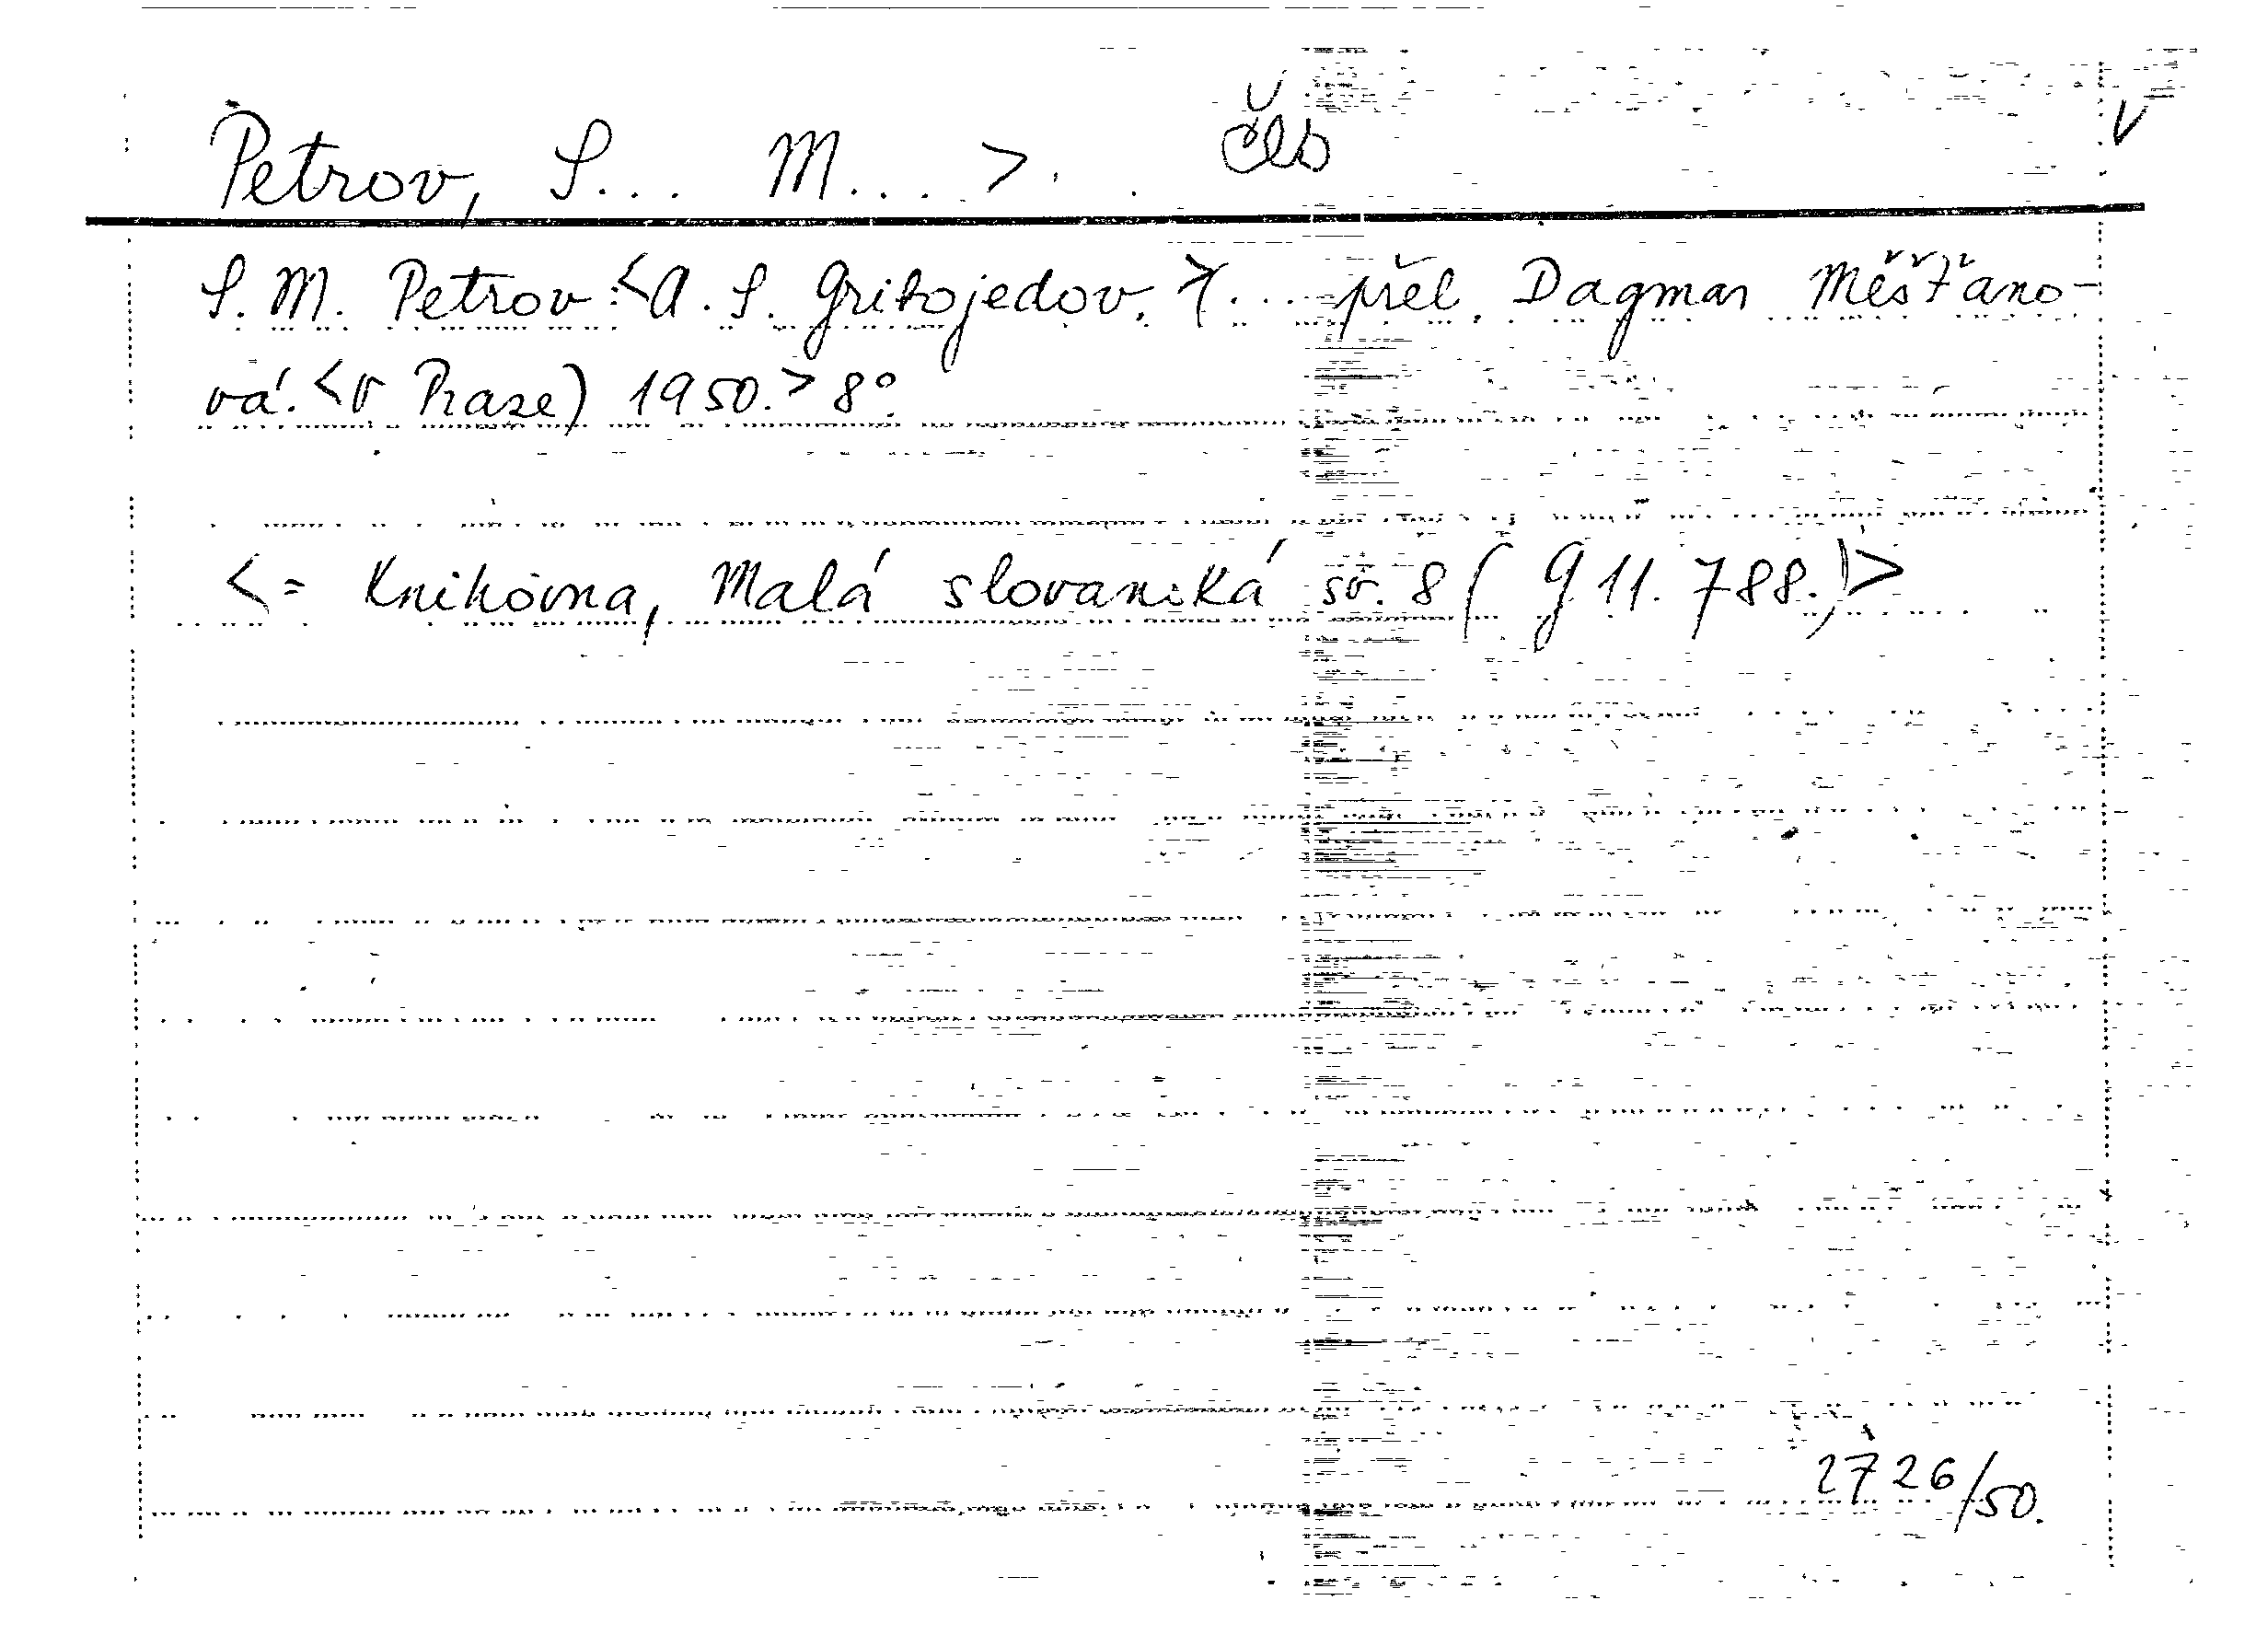 Petrov, S... M... >. čes V
S. M. Petrov: <A. S. Gribojedov. >... přel. Dagmar Měšťano-
vá. <v Praze) 1950.> 8°.
<= Knihovna, Malá slovanská sv. 8 ( 911.788.)>
2726/50.